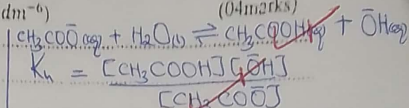 dm⁻⁶) (04marks)
CH₃COŌ(aq) + H₂O(l) ⇌ CH₃COOH(aq) + ŌH(aq)
Kh = [CH₃COOH][ŌH]
[CH₃COŌ]